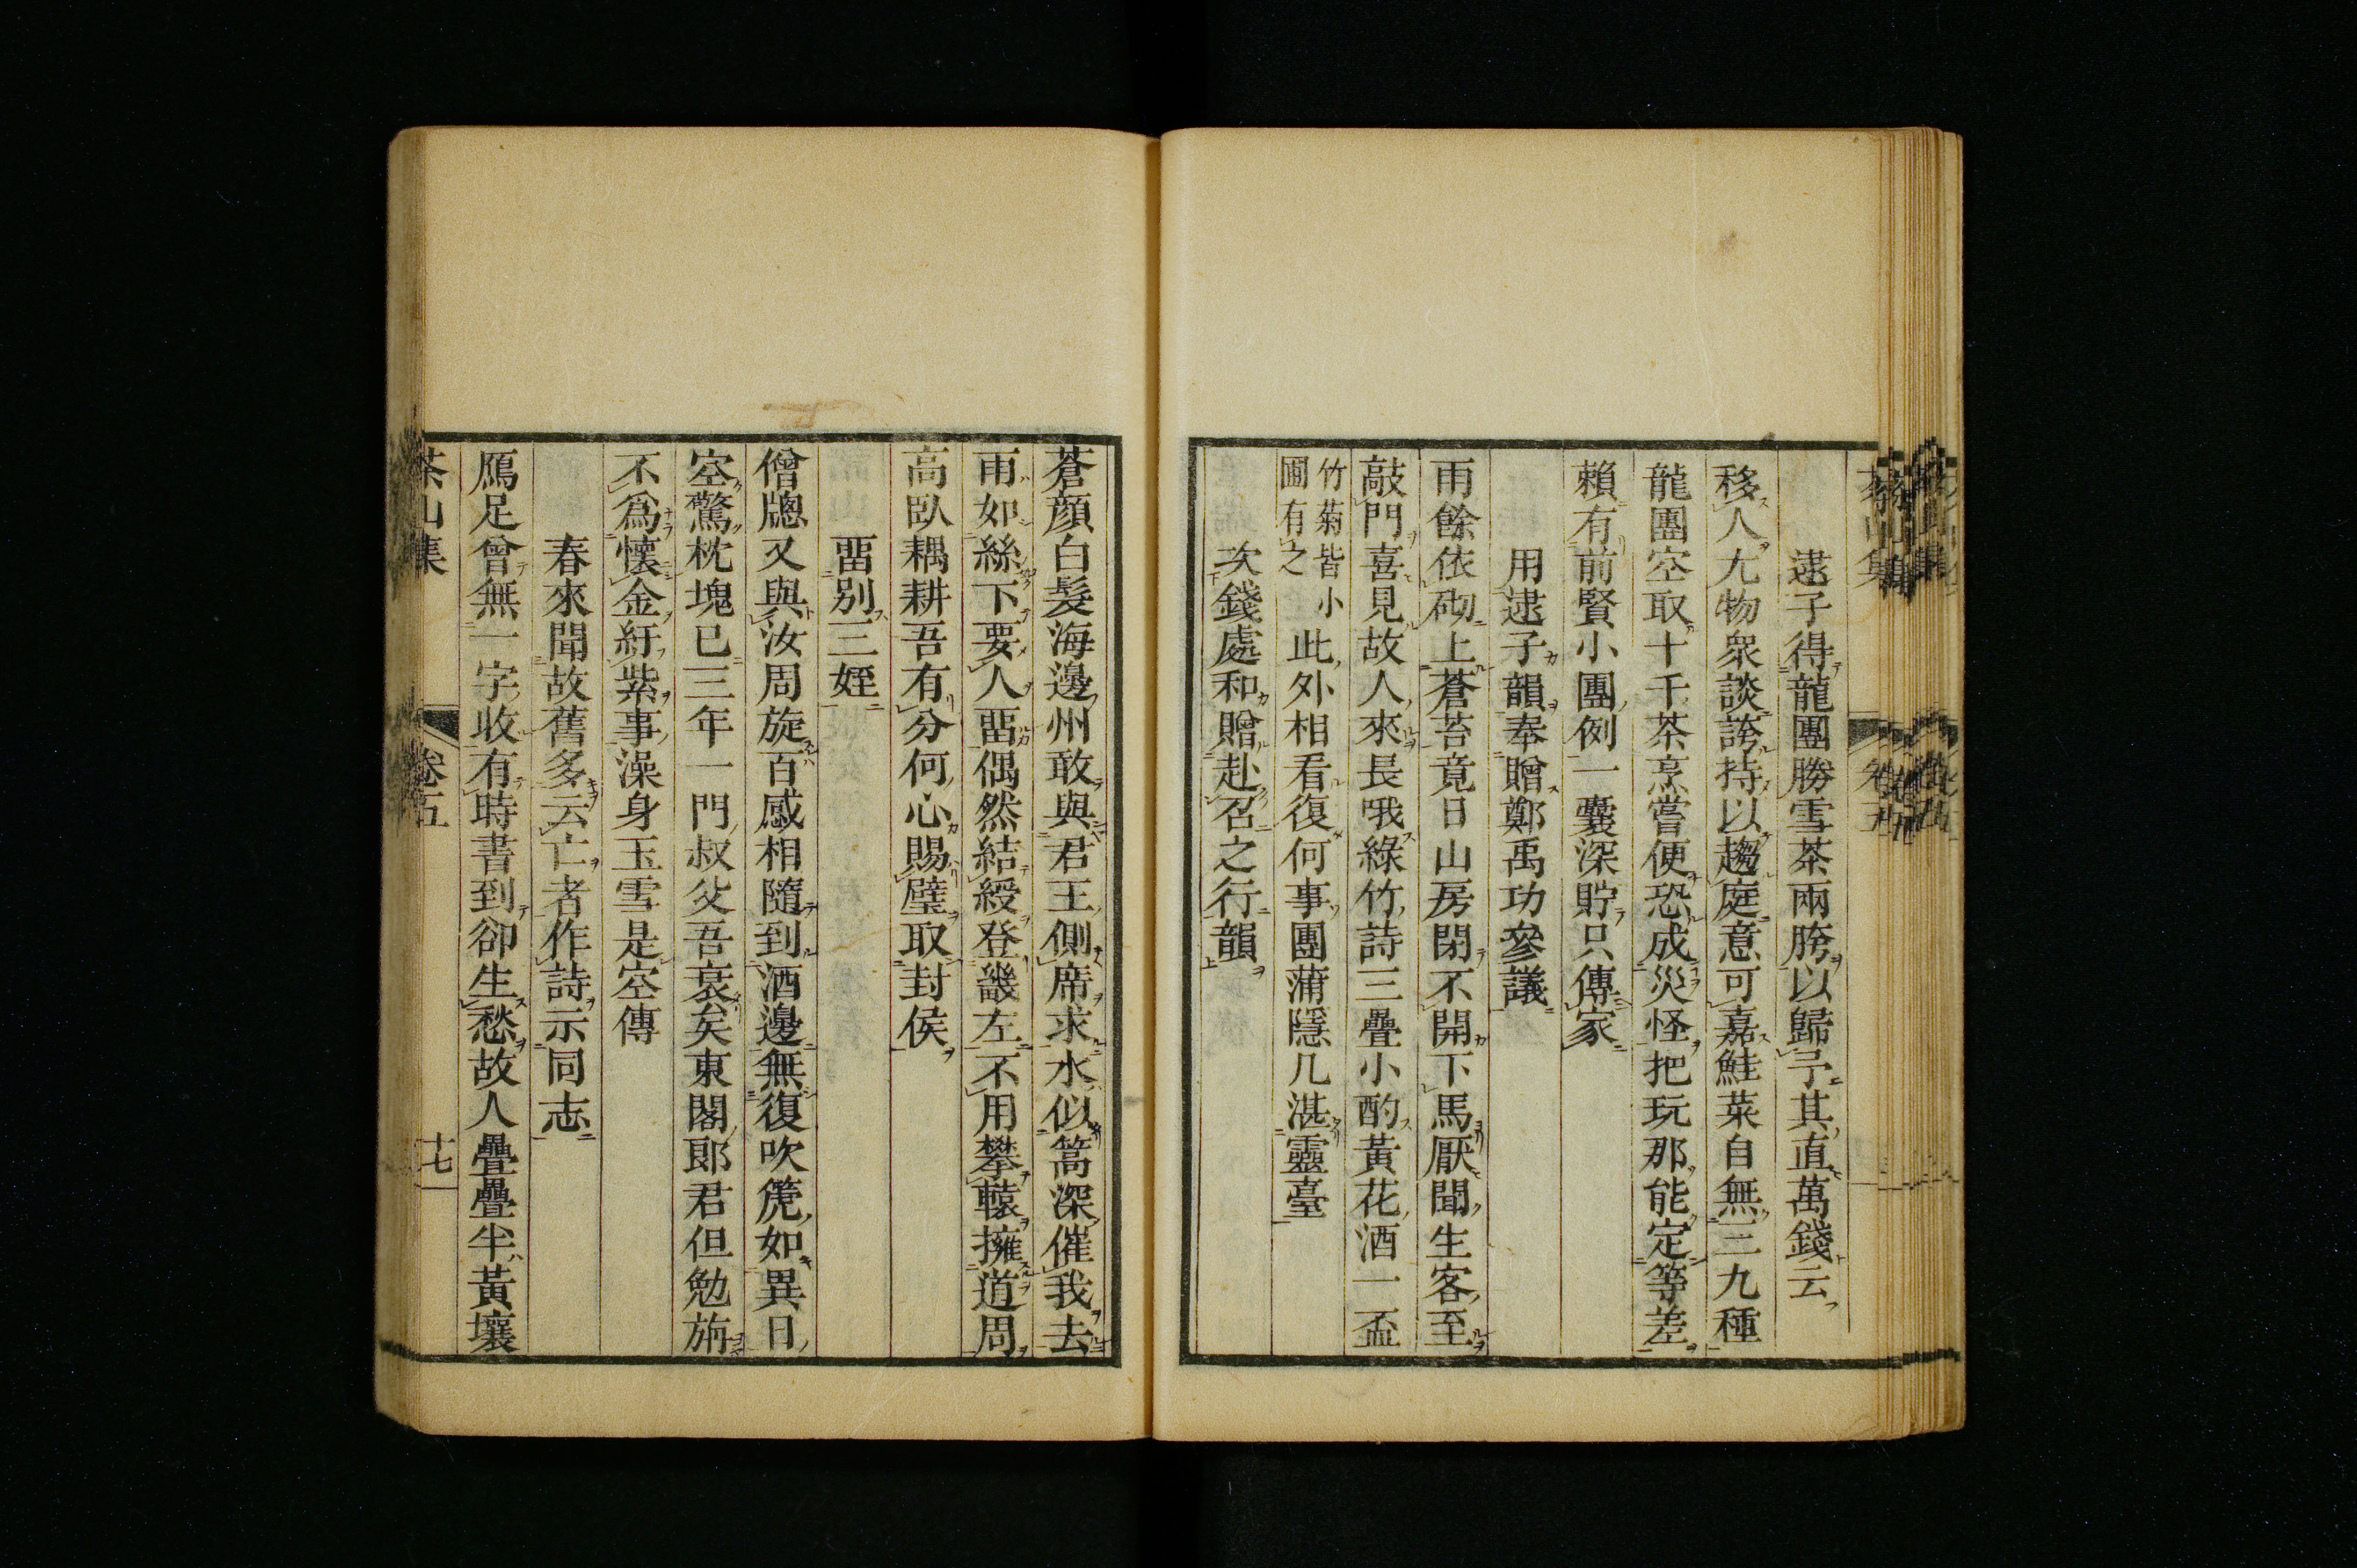 逮子得龍團勝雪茶兩胯以歸予其直萬錢云
移人尤物衆談誇持以趨庭意可嘉鮭菜自無三九種
龍團空取十千茶烹嘗便恐成災怪把玩那能定等差
賴有前賢小團例一囊深貯只傳家
用逮子韻奉贈鄭禹功參議
雨餘依砌上蒼苔竟日山房閉不開下馬厭聞生客至
敲門喜見故人來長哦綠竹詩三疊小酌黃花酒一盃
竹菊皆小
圃有之
此外相看復何事團蒲隱几湛靈臺
次錢處和贈赴召之行韻
蒼顏白髮海邊州敢與君王側席求水似篙深催我去
雨如絲下要人畱偶然結綬登畿左不用攀轅擁道周
高臥耦耕吾有分何心賜璧取封侯
畱別三姪
僧牕又與汝周旋百感相隨到酒邊無復吹箎如異日
空驚枕塊已三年一門叔父吾衰矣東閣郎君但勉旃
不爲懷金紆紫事澡身玉雪是空傳
春來聞故舊多云亡者作詩示同志
鴈足曾無一字收有時書到卻生愁故人疊疊半黃壤
茶山集
卷五
十七